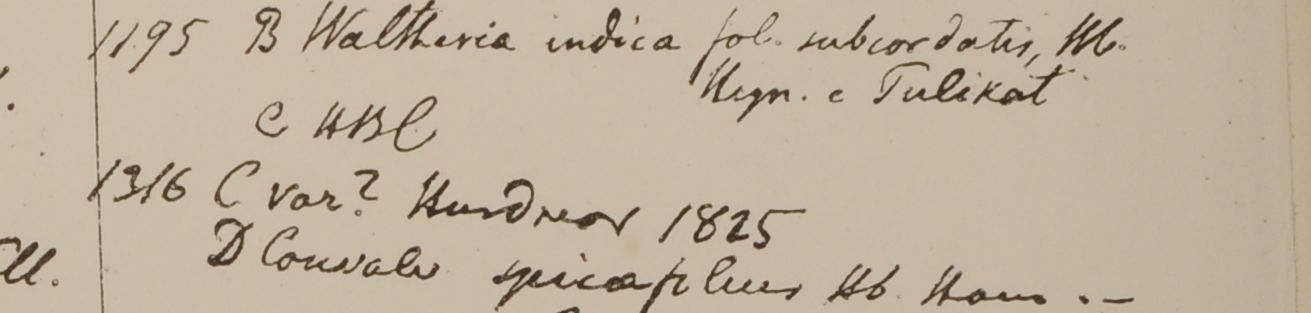 1195 B Waltheria indica fol. subcordatis, Hb.
Heyn. e Tulikat
C HBC
1316 C var? Hurdwar 1825
D Convalv spicafolius Hb. Ham. -
ll.